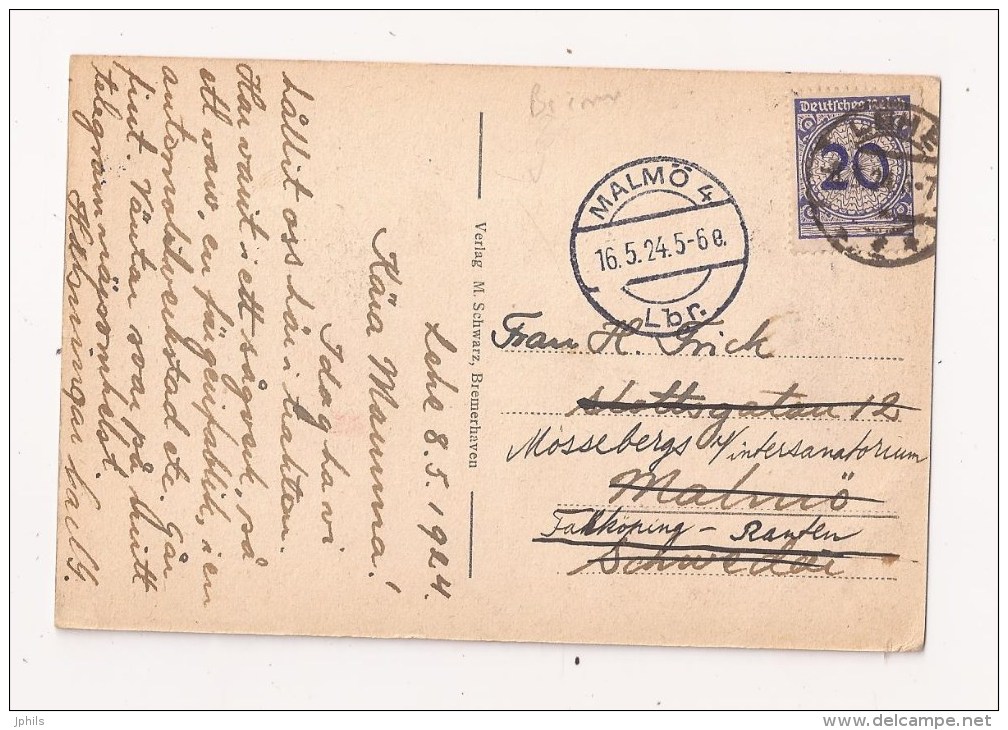 Lehe 8.5.1924.
Kära Mamma!
Idag ha vi
hållit oss här i trakten.
Har varit i ett sågverk, så
ett varv, en färgeifabhik, i en
automobilverkstad etc. Går
fint. Väntar svar på mitt
telegram någvomhelst.
Hälsningar
Verlag M. Schwarz, Bremerhaven
Deutsches Reich
20
LEHE
MALMÖ 4
16.5.24.5-6e.
Lbr.
Frau H. Frick
Slottsgatan 12
Mössebergs Vintersanatorium
Malmö
Falköping - Ranten
Schweden
jphils
www.delcampe.net